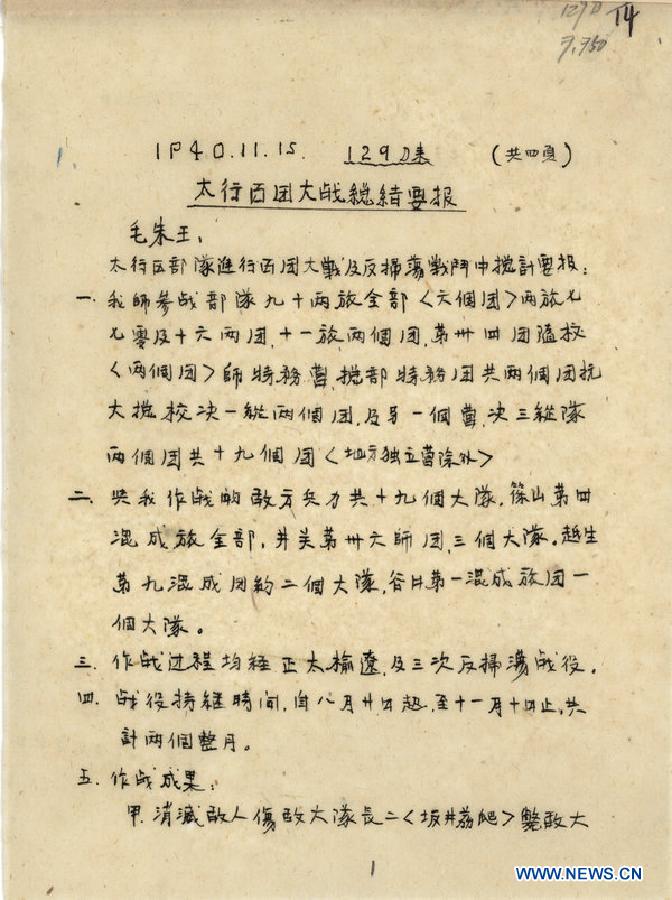 129D T4
7,750
1940.11.15. 129D来 (共四頁)
太行百团大战總結要报
毛朱王、
太行区部隊進行百团大戰及反掃蕩戰鬥中總計要报：
一. 我師參战部隊九十两旅全部<六個团>两旅七
七零及十六两团，十一旅两個团，第卅四团隨校
<两個团>師特務營，總部特務团共两個团抗
大總校决一縱两個团，及另一個營，决三縱隊
两個团共十九個团<地方独立營除外>
二. 與我作战的敵方兵力共十九個大隊，篠山第四
混成旅全部，井关第卅六師团，三個大隊。
第九混成团約二個大隊，谷井第一混成旅团一
個大隊。
三. 作战过程均經正太榆遼，及三次反掃蕩战役。
四. 战役持継時间，自八月廿日起，至十一月十日止，共
計两個整月。
五. 作战成果：
甲. 消滅敵人傷敵大隊長二<坂井荔爬>斃敵大
1
WWW.NEWS.CN